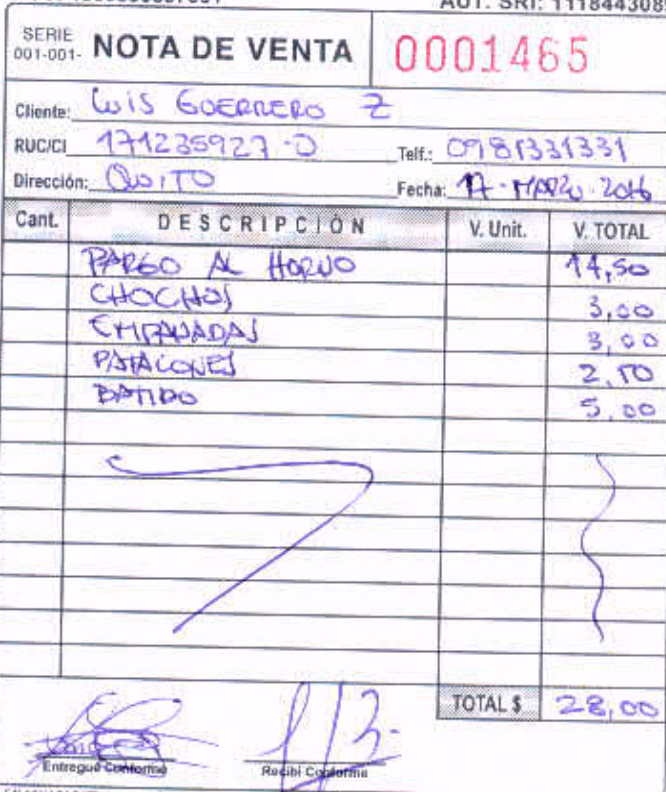 AUT. SRI: 111844308
SERIE
001-001- NOTA DE VENTA 0001465
Cliente: LUIS GUERRERO Z
RUC/CI 171235927-0 Telf.: 0981331331
Dirección: QUITO Fecha: 17-MARZO-2016
Cant. DESCRIPCIÓN V. Unit. V. TOTAL
PARGO AL HORNO 14,50
CHOCHOS 3,00
EMPANADAS 3,00
PATACONES 2,50
BATIDO 5,00
TOTAL $ 28,00
Entregué Conforme Recibí Conforme